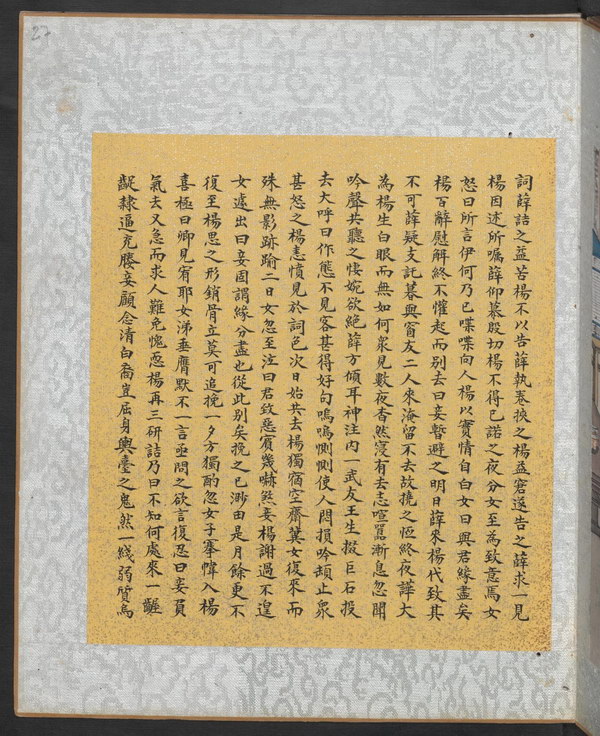 27
詞薛詰之益苦楊不以告薛執卷挾之楊益窘遂告之薛求一見
楊因述所囑薛仰慕殷切楊不得已諾之夜分女至為致意焉女
怒曰所言伊何乃已喋喋向人楊以實情自白女曰與君緣盡矣
楊百辭慰解終不懽起而別去曰妾暫避之明日薛來楊代致其
不可薛疑支託暮與窗友二人來淹留不去故撓之恆終夜譁大
為楊生白眼而無如何衆見數夜杳然寖有去志喧囂漸息忽聞
吟聲共聽之悽婉欲絕薛方傾耳神注內一武友王生掇巨石投
去大呼曰作態不見客甚得好句嗚嗚惻惻使人悶損吟頓止衆
甚怒之楊恚憤見於詞色次日始共去楊獨宿空齋冀女復來而
殊無影跡踰二日女忽至泣曰君致惡賓幾嚇煞妾楊謝過不遑
女遽出曰妾固謂緣分盡也從此別矣挽之已渺由是月餘更不
復至楊思之形銷骨立莫可追挽一夕方獨酌忽女子搴幃入楊
喜極曰卿見宥耶女涕垂膺默不一言亟問之欲言復忍曰妾負
氣去又急而求人難免愧恧楊再三研詰乃曰不知何處來一齷
齪隸逼充媵妾顧念清白裔豈屈身輿臺之鬼然一綫弱質烏